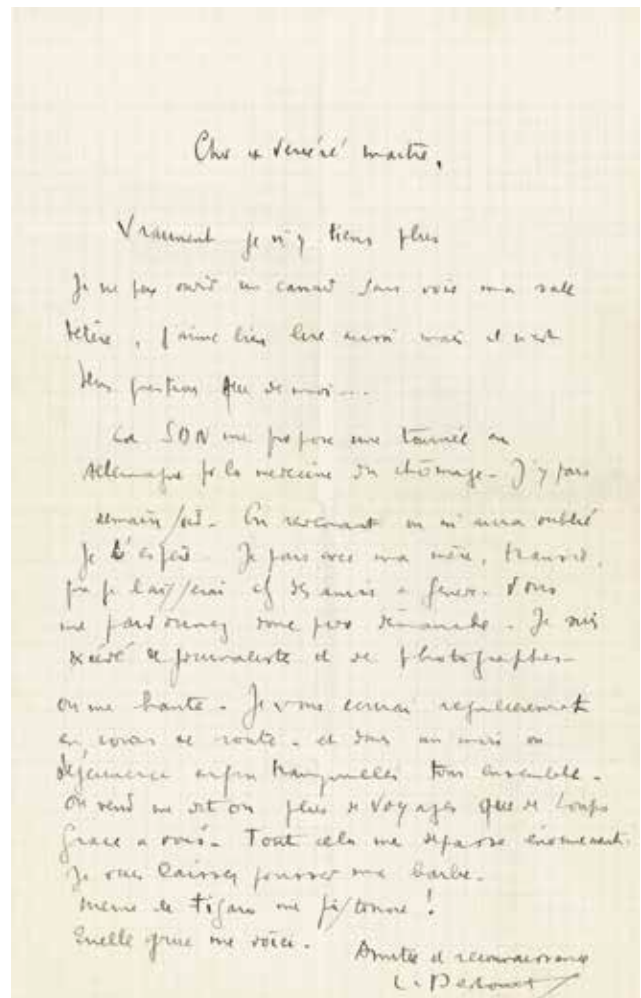 Cher et Vénéré maître,
Vraiment je n'y tiens plus
Je ne peux ouvrir un canard sans voir ma sale
tétère, j'aime bien lire aussi mais il n'est
plus question que de moi...
La SDN me propose une tournée en
Allemagne pr la medecine du chômage - J'y pars
demain soir. En revenant on m'aura oublié
Je l'espère. Je pars avec ma mère,
que je laisserai chez des amis à Genève. Vous
me pardonnez donc pour dimanche. Je suis
excédé de journaliste et de photographes -
on me hante. Je vous écrirai regulierement
en cours de route. et dans un mois on
déjeunera enfin tranquilles tous ensemble.
On vend me dit on plus de Voyages que de Loups
Grace a vous. Tout cela me depasse énormement.
Je vais laisser pousser ma barbe.
Meme le Figaro me pistonne !
Quelle grue me voici.
Amitié et reconnaissance
L. Destouches